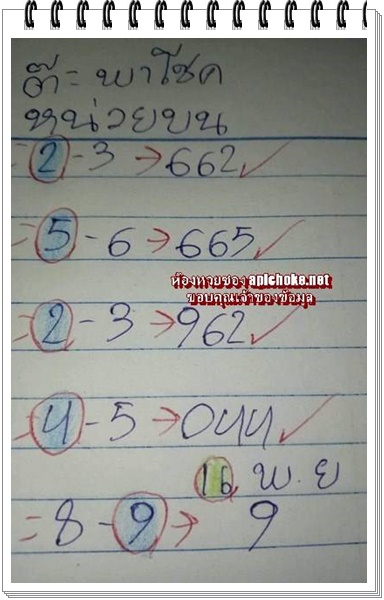 ต๊ะ พาโชค
หน่วยบน
= 2 - 3 → 662 ✓
= 5 - 6 → 665 ✓
ห้องหวยซอง apichoke.net
ขอบคุณเจ้าของข้อมูล
= 2 - 3 → 962 ✓
= 4 - 5 → 044 ✓
16 พ.ย
= 8 - 9 → 9